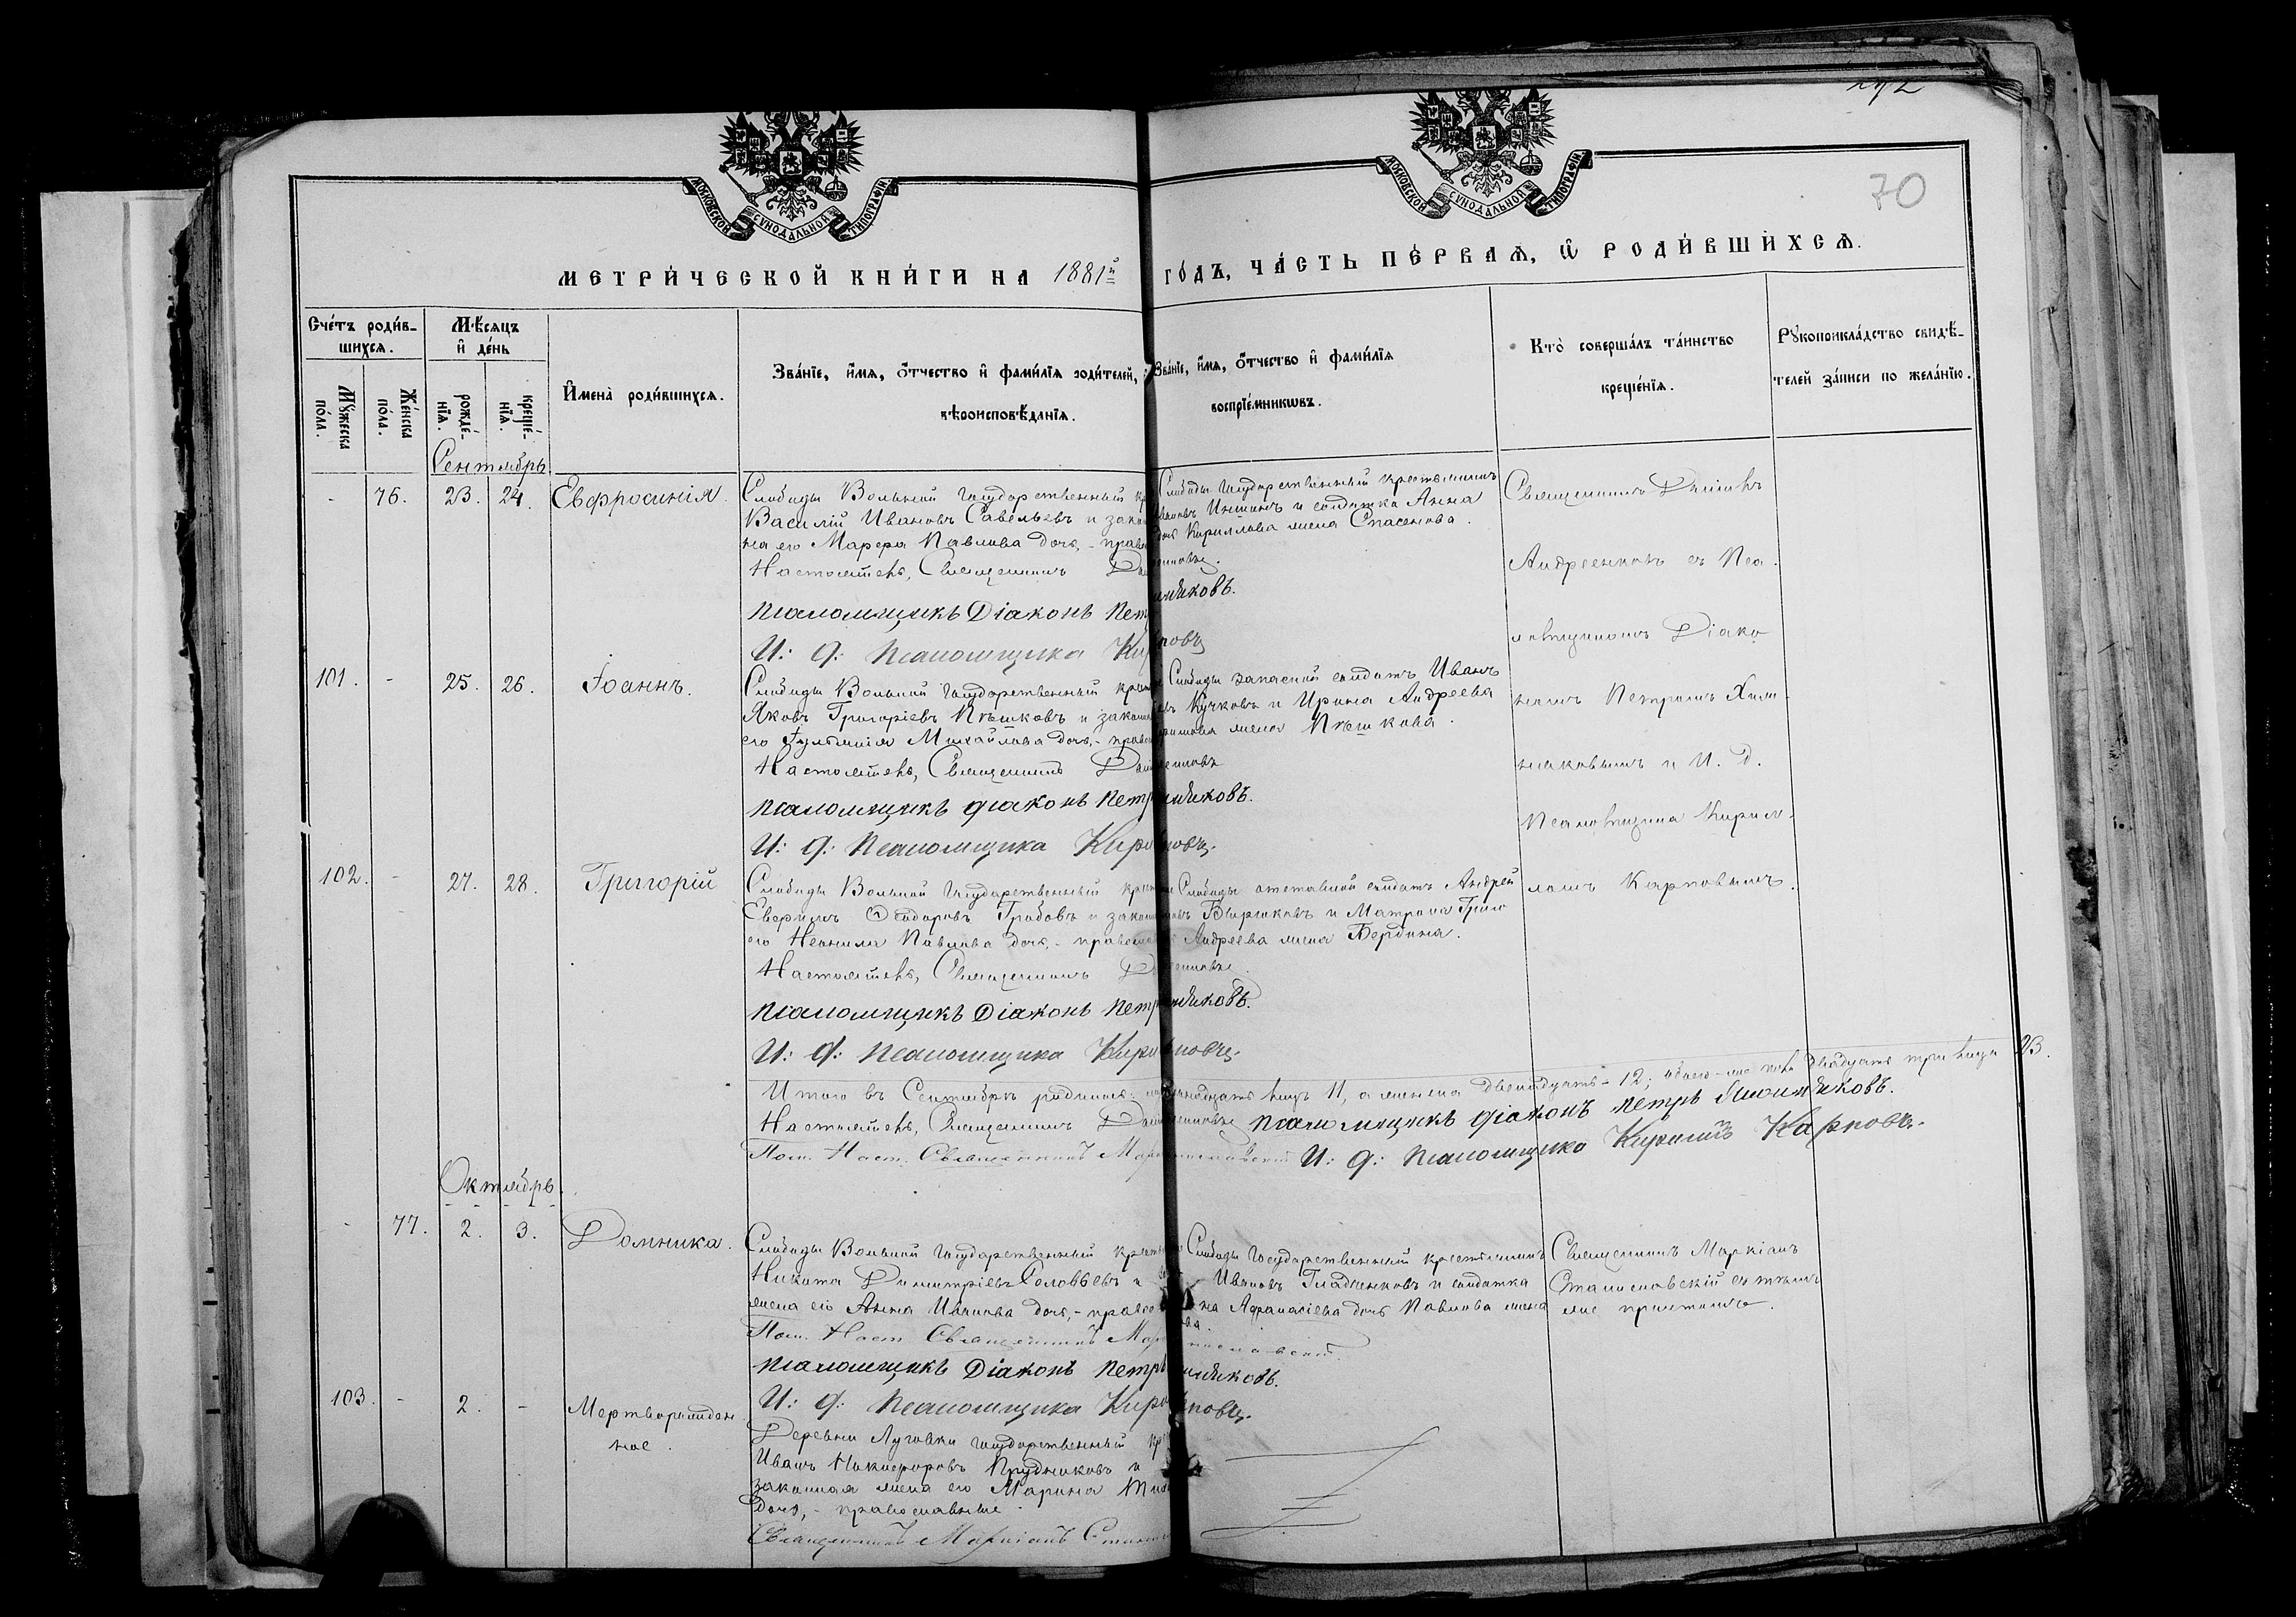 192
70
МОСКОВСКОЙ СѴНОДАЛЬНОЙ ТИПОГРАФІИ.
МОСКОВСКОЙ СѴНОДАЛЬНОЙ ТИПОГРАФІИ.
МЕТРИ́ЧЕСКОЙ КНИ́ГИ НА 1881й ГО́ДЪ, ЧА́СТЬ ПЕ́РВАѦ, Ѽ РОДИ́ВШИХСѦ.
Сче́тъ роди́в-
шихсѧ.
Мꙋ́жеска по́ла.
Же́нска по́ла.
Мѣ́сѧцъ
и҆ де́нь
рожде́-нїѧ.
креще́-нїѧ.
И҆мена̀ роди́вшихсѧ.
Зва́нїе, и҆́мѧ, ѻ҆́тчество и҆ фами́лїѧ роди́телей,
вѣроисповѣ́данїѧ.
Зва́нїе, и҆́мѧ, ѻ҆́тчество и҆ фами́лїѧ
воспрїе́мникѡвъ.
Кто̀ соверша́лъ та́инство
креще́нїѧ.
Рꙋкоприкла́дство свидѣ́-
телей за́писи по жела́нїю.
Сентябрь
- 76. 23. 24. Евфросинія.
Слободы Вольной государственный кр
Василій Ивановъ Савельевъ и зако
на его Марфа Павлова дочь, - право
Настоятель, Священникъ
Псаломщикъ Діаконъ Петр
И: д: Псаломщика Ки
Слободы государственный крестьянинъ
Ивановъ и солдатка Анна
Кириллова жена Спасенова.
никовъ.
повъ
Священникъ
Андреенковъ съ Пса-
ломщикомъ Діако
номъ Петромъ
никовымъ и И. Д.
Псаломщика Кирил-
ломъ Карповымъ.
101. - 25. 26. Іоаннъ.
Слободы Вольной государственный крест
Яковъ Григоріевъ Пѣшковъ и закон
его Іуліанія Михайлова дочь, - право
Настоятель, Священникъ
Псаломщикъ діаконъ Петр
И: д: Псаломщика Кири
Слободы запасной солдатъ Иванъ
Кучковъ и Ирина Андреева
жена Пѣшкова.
никовъ.
повъ.
102. - 27. 28. Григорій
Слободы Вольной государственный крест
Ѳедоровъ Грибовъ и закон
его Неонила Павлова дочь, - правосл
Настоятель, Священникъ
Псаломщикъ Діаконъ Петр
И: д: Псаломщика Кири
Слободы отставной солдатъ Андрей
и Матрона Григо
Андреева жена Бердина.
никовъ.
повъ.
Итого въ Сентябрѣ родилось: лицъ 11, а женска двенадцать - 12; двадцать три лица 23.
Настоятель, Священникъ псаломщикъ діаконъ Петръ
Пом. Наст. Священникъ И: д: Псаломщика Кириллъ Карповъ.
Октябрь.
- 77. 2. 3. Домника.
Слободы Вольной государственный крест
Никита Димитріевъ Соловьевъ и
жена его Анна Иванова дочь, - право
Пом. Наст. Священникъ
Псаломщикъ Діаконъ Петръ
И: д: Псаломщика Кири
Слободы государственный крестьянинъ
Ивановъ Гладченковъ и солдатка
Афанасіева дочь Павлова жена
никовъ.
повъ.
Священникъ Маркіанъ
Станиславскій съ тѣмъ
же причтомъ.
103. - 2. - Мертворожден-
ное.
Деревни Луговки государственный кр
Иванъ Никифоровъ Прудниковъ и
законная жена его Марина
дочь, - православные.
Священникъ Маркіанъ